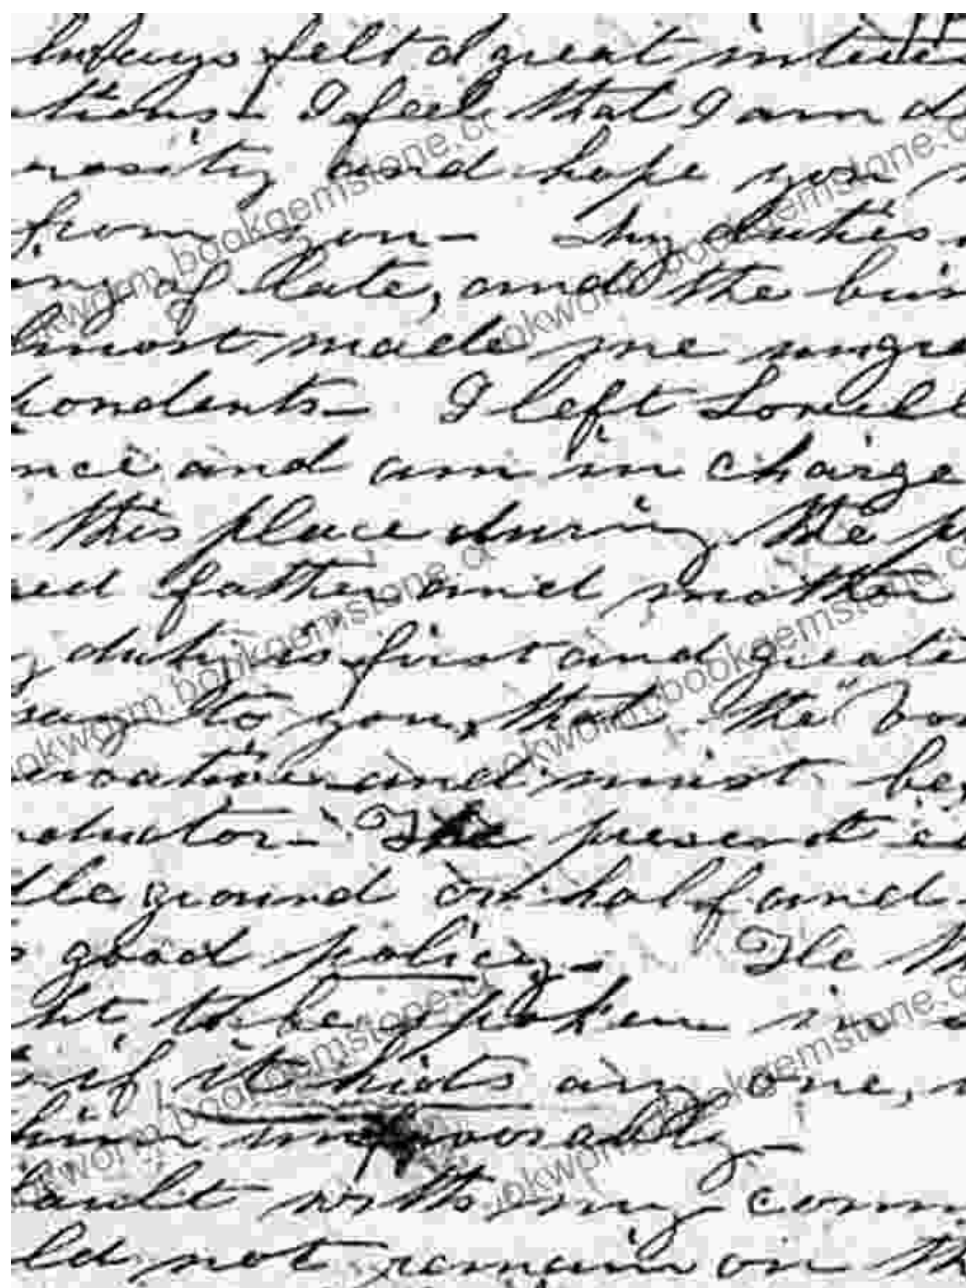 always felt a great inter
tions. I feel that I am d
rosity and hope you
from you- My duties
ing of late, and the bus
lmost made me ungra
pondents- I left Lowell
nce and am in charge
this place during the p
red father and mother
duty is first and greate
say to you, that the "Vo
must be
The present is
dle ground or half and
good policy- The th
ht to be spoken in
if it hiots any one,
ably-
fault with my com
ld not remain on th
bookworm.bookgemstone.c